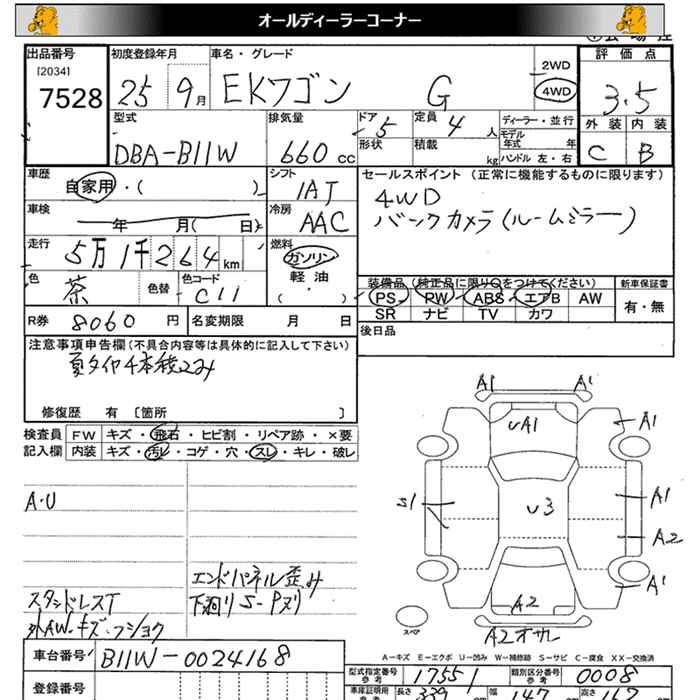 オールディーラーコーナー
出品番号
[2034]
7528
初度登録年月
25 9月
車名・グレード
EKワゴン G
2WD
4WD
評価点
3.5
外装 内装
C B
型式
DBA-B11W
排気量
660cc
ドア 5
形状
定員 4人
積載 kg
ディーラー・並行
モデル年式 年
ハンドル 左・右
車歴
自家用・( )
シフト
IAT
セールスポイント (正常に機能するものに限ります)
4WD
バックカメラ(ルームミラー)
車検
年 月( 日)
冷房
AAC
走行
5万1千264km
燃料
ガソリン
軽油
( ・ )
色
茶
色替
色コード
C11
装備品 (純正品に限り○をつけてください)
PS PW ABS エアB AW
SR ナビ TV カワ
新車保証書
有・無
R券 8060円
名変期限 月 日
後日品
注意事項申告欄(不具合内容等は具体的に記入して下さい)
夏タイヤ4本積込み
修復歴 有 〔箇所 〕
検査員記入欄
FW キズ・飛石・ヒビ割・リペア跡・×要
内装 キズ・汚レ・コゲ・穴・スレ・キレ・破レ
A・U
エンドパネル歪み
下廻りS-Pヌリ
スタッドレスT
外AW-キズ・フショク
A1 A1
UA1
A1
S1
U3
A1
A2
A1
A2
A2オサレ
スペア
A-キズ E-エクボ U-凹み W-補修跡 S-サビ C-腐食 XX-交換済
車台番号
B11W-0024168
登録番号
型式指定番号 参考 17551
類別区分番号 参考 0008
車庫証明用 参考 長さ 339 幅 147 高さ 162